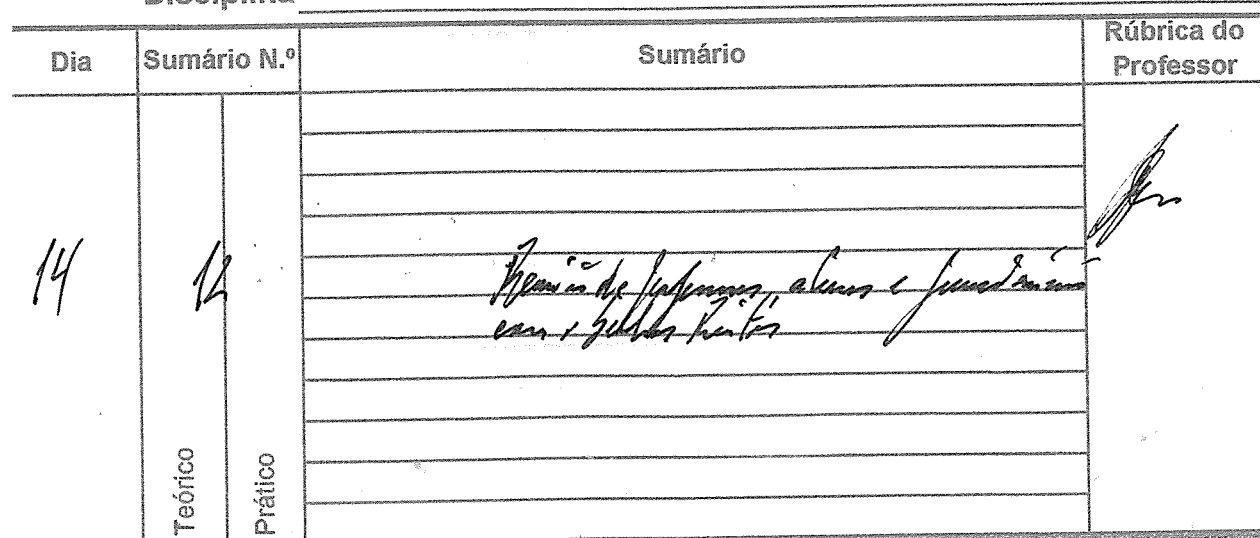 Disciplina
Dia
Sumário N.º
Sumário
Rúbrica do
Professor
14
12
Reunião de professores, alunos e funcionários
com o Senhor Reitor
Teórico
Prático